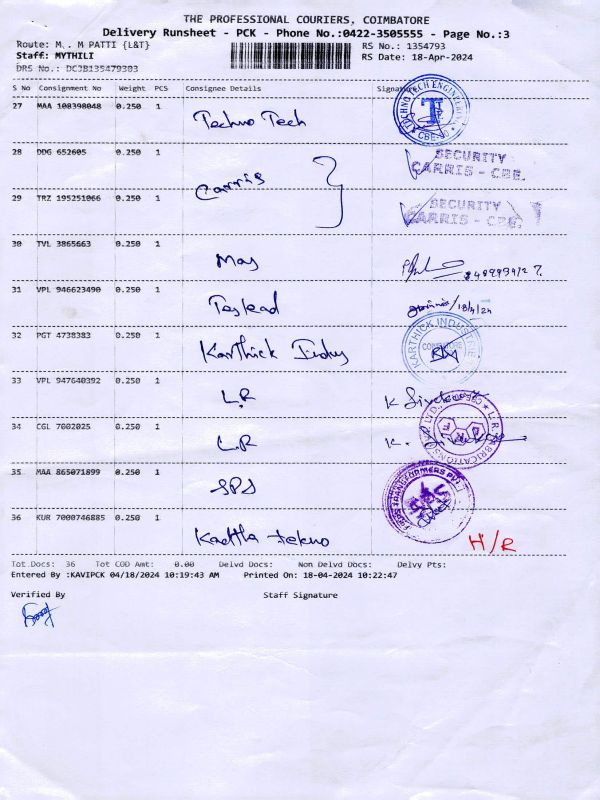 THE PROFESSIONAL COURIERS, COIMBATORE
Delivery Runsheet - PCK - Phone No.:0422-3505555 - Page No.:3
Route: M. . M PATTI {L&T} RS No.: 1354793
Staff: MYTHILI RS Date: 18-Apr-2024
DRS No.: DCJB135479303
S No Consignment No Weight PCS Consignee Details Signature
27 MAA 108398048 0.250 1 Techno Tech
28 DDG 652605 0.250 1 Carris SECURITY CARRIS - CBE.
29 TRZ 195251066 0.250 1 SECURITY CARRIS - CBE.
30 TVL 3865663 0.250 1 Mas
31 VPL 946623490 0.250 1 18/4/24
32 PGT 4738383 0.250 1 Karthick Indus KARTHICK INDUSTRIE COIMBATORE
33 VPL 947640392 0.250 1 L.R K
34 CGL 7002025 0.250 1 L.R K.
35 MAA 865071899 0.250 1 SPS
36 KUR 7000746885 0.250 1 tekno H/R
Tot Docs: 36 Tot COD Amt: 0.00 Delvd Docs: Non Delvd Docs: Delvy Pts:
Entered By :KAVIPCK 04/18/2024 10:19:43 AM Printed On: 18-04-2024 10:22:47
Verified By Staff Signature